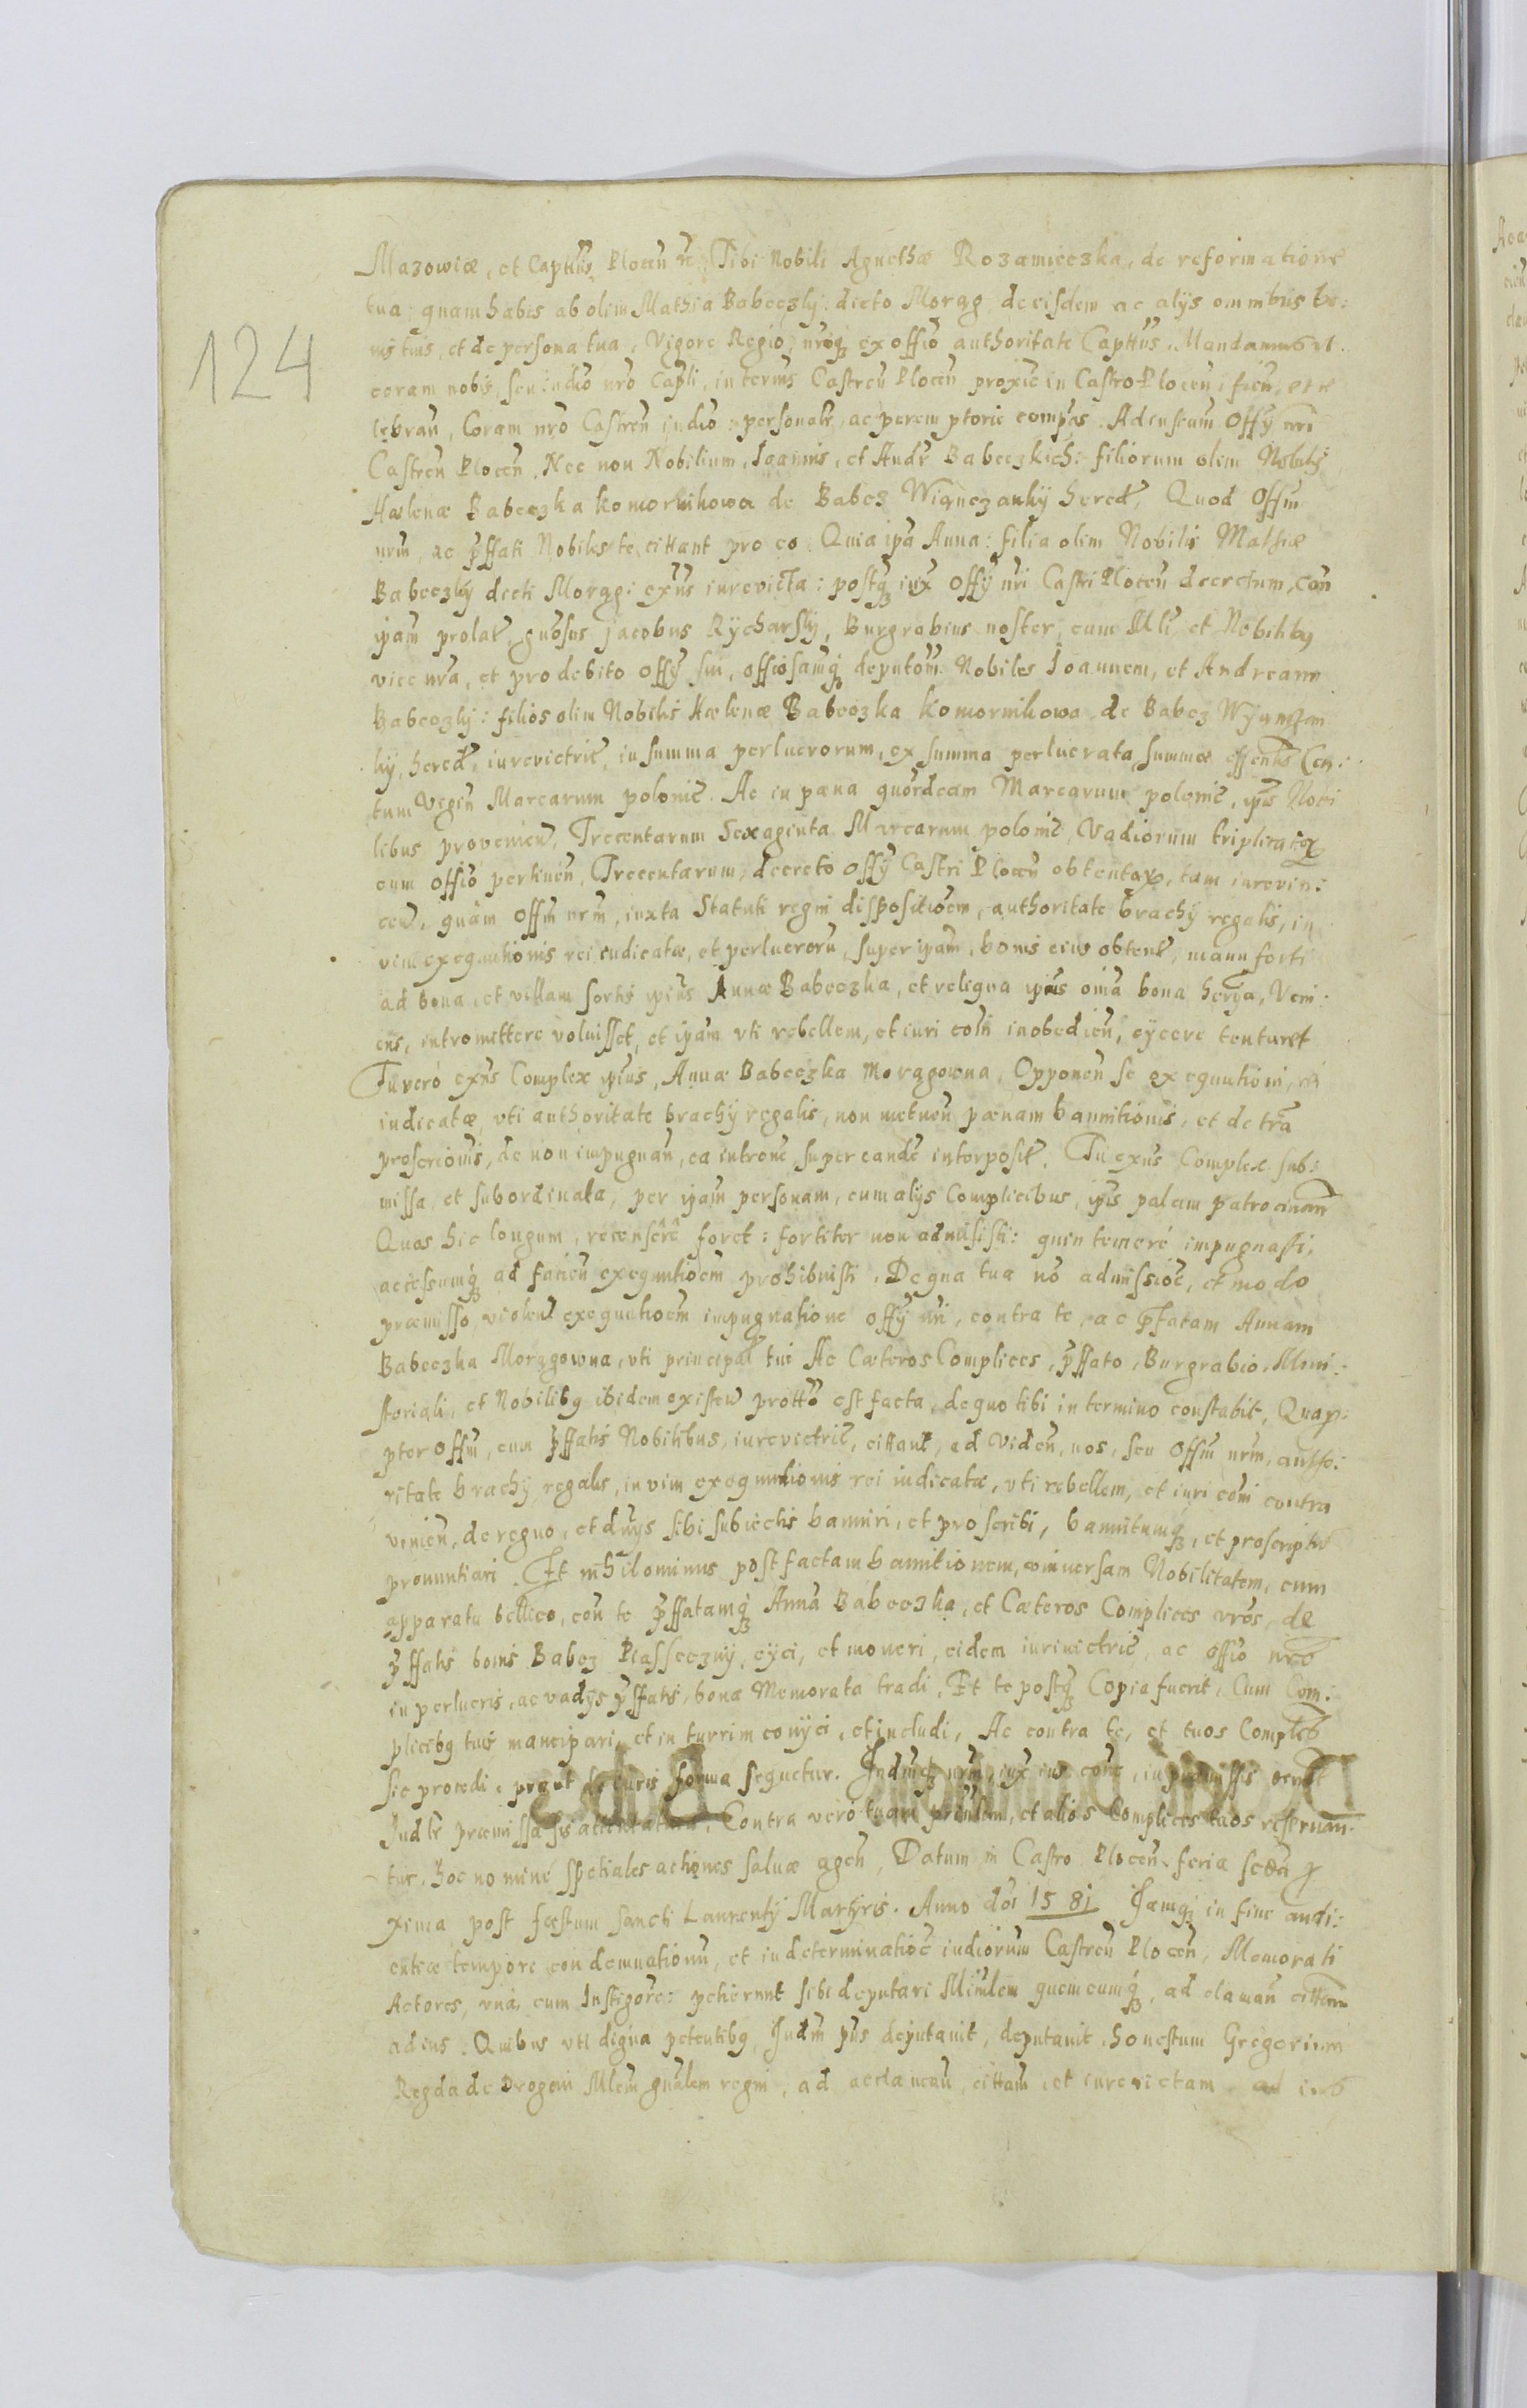 124
Mazowiæ, et Capttus Plocen̄ ꝛc Tibi Nobili Agnethæ Rozamieczka, de reformatione
tua, quam habes ab olim Mathia Babeczky: dicto Morąg, de eisdem ac alijs omnibus bo:
nis tuis, et de persona tua, Vigore Regio, nrōq̨ ex offio authoritate Capttus. Mandamus vt
coram nobis, seu iudīo nrō Captli, in termīs Castren̄ Plocen̄ proxīe in Castro Plocen̄, fien̄, et ce
lebran̄, Coram nrō Castren̄ iudīo: personalr, ac peremptorie compās. Ad instam Offÿ nrī
Castren̄ Plocen̄, Nec non Nobilium, Ioannis, et Andr Babeczkich: filiorum olim Nobilis
Hælenæ Babeczka komornikowa de Babez Wiączankÿ hered, Quod Offm
nrm, ac p̄ffati Nobiles te cittant pro eo. Quia ipā Anna: filia olim Nobilis Mathiæ
Babeczkÿ decti Morąg: exn̄s iurevicta: postq̨ iux Offÿ nrī Castri Plocen̄ decretum, con
ipam prolat, gn̄osus jacobus Rÿcharskÿ, Burgrabius noster, cum Mli et Nobilibꝰ
vice nrā, et pro debito offÿ sui, offiosamq̨ deputom̄. Nobiles Ioannem, et Andream
Babeczkÿ: filios olim Nobilis Hælenæ Babeczka Komornikowa, de Babez Wÿączan
kÿ, hered, iurevictric, in summa perlucrorum, ex summa perlucrata, summæ effentis Cen:
tum Vegin̄ Marcarum polonic. Ac in pæna quordcam Marcarum polonic, ipīs Nobi
libus provenien̄, Trecentarum Sexaginta Marcarum polonic, Vadiorum triplicatoꝝ
cum offio pertinen̄, Trecentarum, decreto offÿ Castri Plocen̄ obtentoꝝ, tam iurevin:
cen̄, quàm offm nrm, iuxta Statuti regni dispositioēm, authoritate brachÿ regalis, in
vim exequutionis rei iudicatæ, et perlucroru, super ipam, bonis eius obtent, manu forti
ad bona, et villam sortis ipius Annæ Babeczka, et reliqua ipius oīa bona herīa, Veni:
ens, intromittere voluisset, et ipam vti rebellem, et iuri coīi inobedien̄, eÿcere tenturet
Tu verò exn̄s Complex ipius, Annæ Babeczka Morągowna, Opponen̄ se exequutioni, rei
iudicatæ, vti authoritate brachÿ regalis, non metuen̄ pænam bannitionis, et de trā
proscrionis, de non impugnan̄, ea introne, super eande interposit. Tu exn̄s Complex sub:
missa, et subordinata, per ipam personam, cum alÿs Complicibus, ipīs palam patrocinan̄
Quas hic longum, recensêrê foret: fortiter non admisisti: quin temerè impugnasti,
accessumq̨ ad facien̄ exequutioēm prohibuisti. De qua tua nō admissioē, et modo
præmisso, violen̄ exequutioēm impugnatione offÿ nrī, contra te, ac p̄fatam Annam
Babeczka Morągowna, vti principal tui Ac Cæteros Complices, p̄ffato, Burgrabio, Mini:
steriali, et Nobilibꝰ ibidem existen̄ prottō est facta, de quo tibi in termino constabit, Quap:
pter offm, cum p̄ffatis Nobilibus, iurevictric, cittant, ad viden̄, nos, seu offm nrm, autho:
ritate brachÿ regalis, in vim exequutionis rei iudicatæ, vti rebellem, et iuri coīi contra
venien̄, de regno, et dnÿs sibi subiectis banniri, et proscribi, bannitumq̨, et proscriptu
pronuntiari. Et nihilominus post factam bannitionem, conuersam Nobilitatem, cum
apparatu bellico, con te p̄ffatamq̨ Anna Babeczka, et Cæteros Complices vros, de
p̄ffatis bonis Babez Piasseczny, eÿci, et moneri, eidem iurivictric, ac offio nrō
in perlucris, ac vadÿs p̄ffatis, bona Memorata tradi. Et te postq̨ Copia fuerit, Cum Com:
plicibꝰ tuis mancipari, et in turrim conÿci, et includi, Ac contra te, et tuos Complices
sic procedi, prout de iuris forma sequetur. Iudīuq̨ nrm, iux ius coīe, in præmissis decret
Iudtr præmissa sis attentatura. Contra verò tuam prin̄lem, et alios Complices tuos reseruan
tur, hoc nomine spetiales actiones saluæ agen̄, Datum in Castro Plocen̄ feria secda p
xima post festum Sancti Laurentÿ Martÿris. Anno doī 1581 Itaq̨ in fine audi:
entiæ tempore condemnationu, et in determinatioē iudiorum Castren̄ Plocen̄, Memorati
Actores, vnà, cum Instigore: petierunt sibi deputari Minlem quemcumq̨, ad claman̄ cittam
ad ius. Quibus vti digna petentibꝰ, Iudm p̄ns deputauit, deputauit, honestum Gregorium
Regda de Drogom Mlem gn̄alem regni, ad acclaman̄, cittam, et iurevictam ad ius